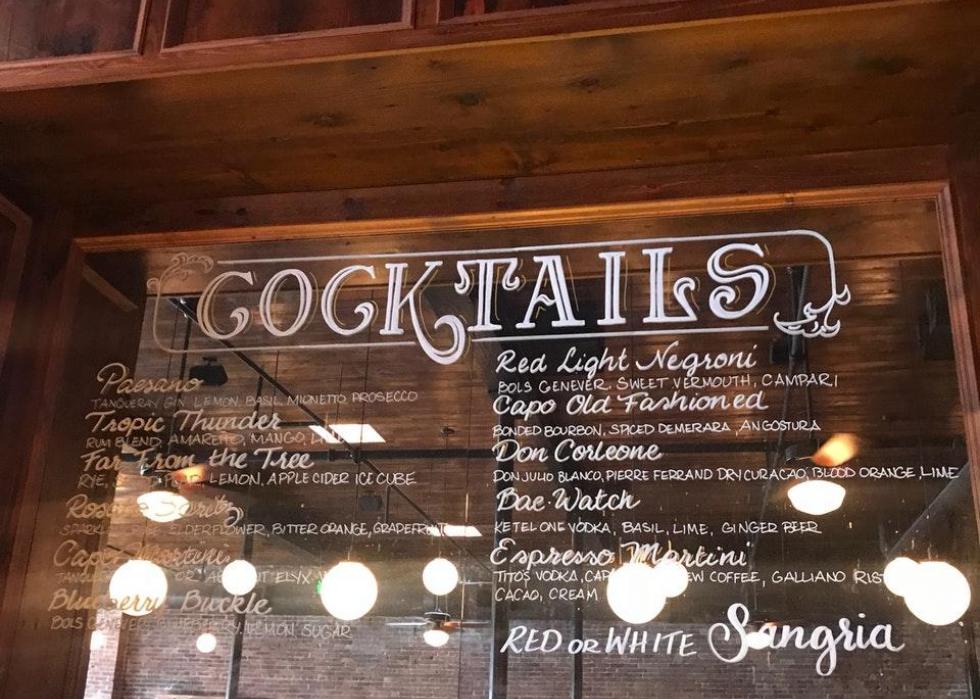 COCKTAILS
Paesano
TANQUERAY GIN, LEMON, BASIL, MIONETTO PROSECCO
Tropic Thunder
RUM BLEND, AMARETTO, MANGO,
Far From the Tree
RYE, LEMON, APPLE CIDER ICE CUBE
ELDERFLOWER, BITTER ORANGE, GRAPEFRUIT
Capo Martini
Blueberry Buckle
BOLS LEMON SUGAR
Red Light Negroni
BOLS GENEVER, SWEET VERMOUTH, CAMPARI
Capo Old Fashioned
BONDED BOURBON, SPICED DEMERARA, ANGOSTURA
Don Corleone
DON JULIO BLANCO, PIERRE FERRAND DRY CURACAO, BLOOD ORANGE, LIME
Bae Watch
KETEL ONE VODKA, BASIL, LIME, GINGER BEER
Espresso Martini
TITO'S VODKA, COFFEE, GALLIANO
CACAO, CREAM
RED OR WHITE Sangria